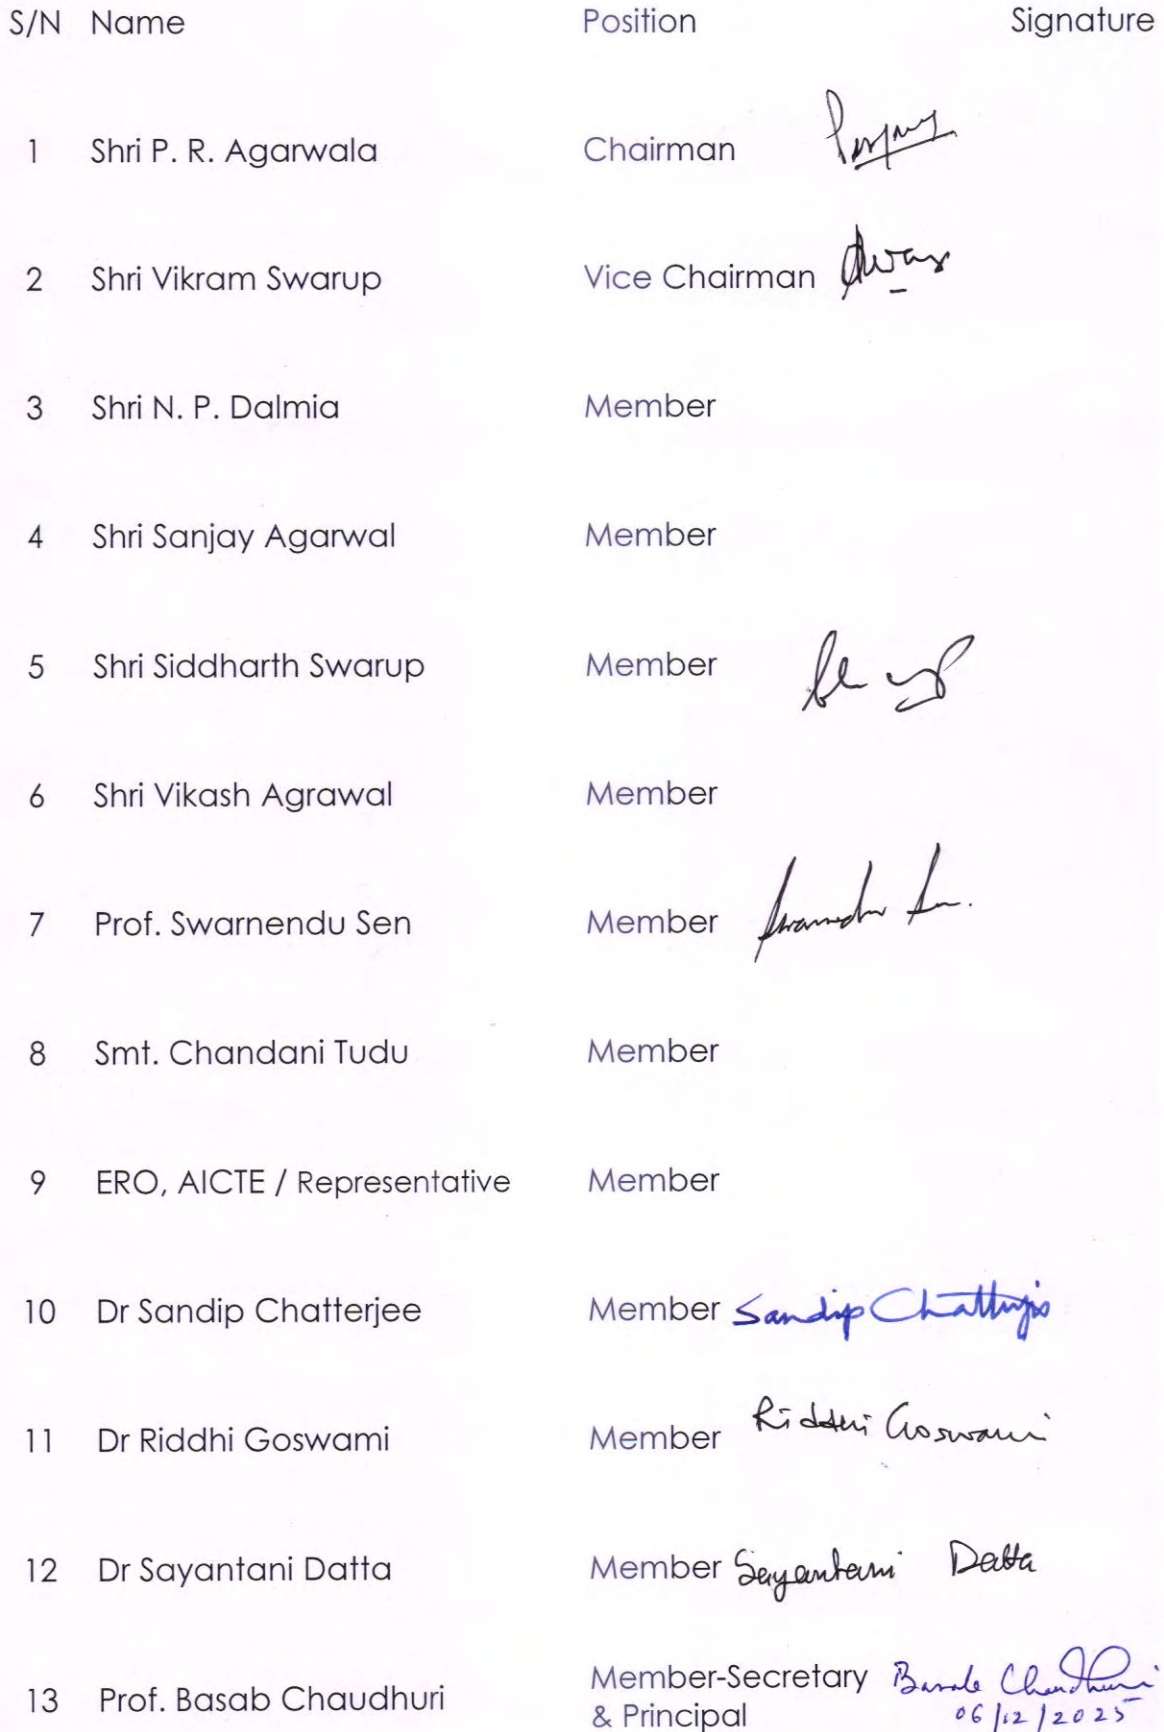 S/N Name Position Signature
1 Shri P. R. Agarwala Chairman
2 Shri Vikram Swarup Vice Chairman
3 Shri N. P. Dalmia Member
4 Shri Sanjay Agarwal Member
5 Shri Siddharth Swarup Member
6 Shri Vikash Agrawal Member
7 Prof. Swarnendu Sen Member
8 Smt. Chandani Tudu Member
9 ERO, AICTE / Representative Member
10 Dr Sandip Chatterjee Member Sandip Chatterjee
11 Dr Riddhi Goswami Member Riddhi Goswami
12 Dr Sayantani Datta Member Sayantani Datta
13 Prof. Basab Chaudhuri Member-Secretary Basab Chaudhuri
& Principal 06/12/2025